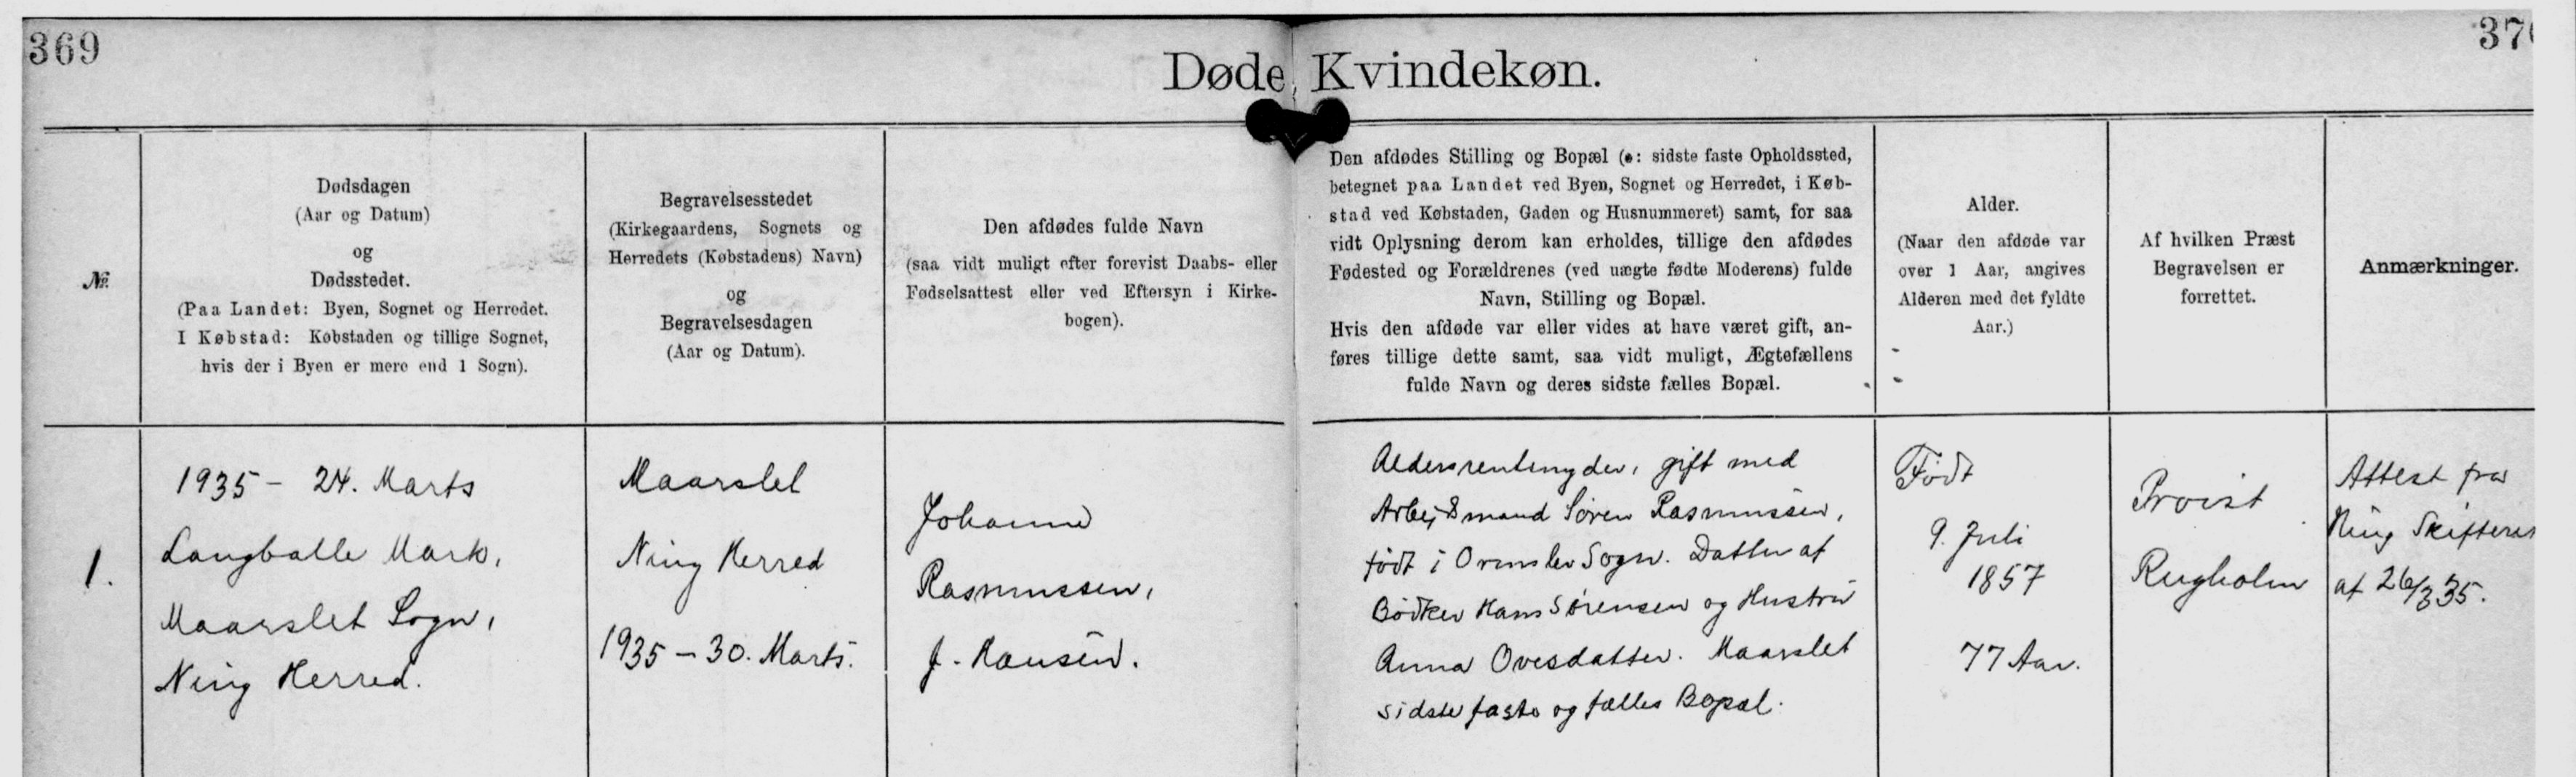 369
370
Døde Kvindekøn.
№
Dødsdagen
(Aar og Datum)
og
Dødsstedet.
(Paa Landet: Byen, Sognet og Herredet.
I Købstad: Købstaden og tillige Sognet,
hvis der i Byen er mere end 1 Sogn).
Begravelsesstedet
(Kirkegaardens, Sognets og
Herredets (Købstadens) Navn)
og
Begravelsesdagen
(Aar og Datum).
Den afdødes fulde Navn
(saa vidt muligt efter forevist Daabs- eller
Fødselsattest eller ved Eftersyn i Kirke-
bogen).
Den afdødes Stilling og Bopæl (ɔ: sidste faste Opholdssted,
betegnet paa Landet ved Byen, Sognet og Herredet, i Køb-
stad ved Købstaden, Gaden og Husnummeret) samt, for saa
vidt Oplysning derom kan erholdes, tillige den afdødes
Fødested og Forældrenes (ved uægte fødte Moderens) fulde
Navn, Stilling og Bopæl.
Hvis den afdøde var eller vides at have været gift, an-
føres tillige dette samt, saa vidt muligt, Ægtefællens
fulde Navn og deres sidste fælles Bopæl.
Alder.
(Naar den afdøde var
over 1 Aar, angives
Alderen med det fyldte
Aar.)
Af hvilken Præst
Begravelsen er
forrettet.
Anmærkninger.
1.
1935 - 24. Marts
Langballe Mark,
Maarslet Sogn,
Ning Herred.
Maarslet
Ning Herred
1935 - 30. Marts.
Johanne
Rasmussen,
f. Hansen.
Aldersrentenyder, gift med
Arbejdsmand Søren Rasmussen,
født i Ormslev Sogn. Datter af
Bødker Hans Sørensen og Hustru
Anna Ovesdatter. Maarslet
sidste faste og fælles Bopæl.
Født
9. Juli
1857
77 Aar.
Provst
Rugholm
Attest fra
Ning Skifteret
af 26/3 35.